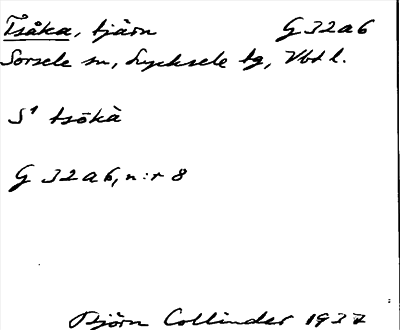 Tsåka, tjärn G 32 a 6
Sorsele sn, Lycksele tg, Vbt l.
S¹ tsōkà
G 32 a 6, n:r 8
Björn Collinder 1937